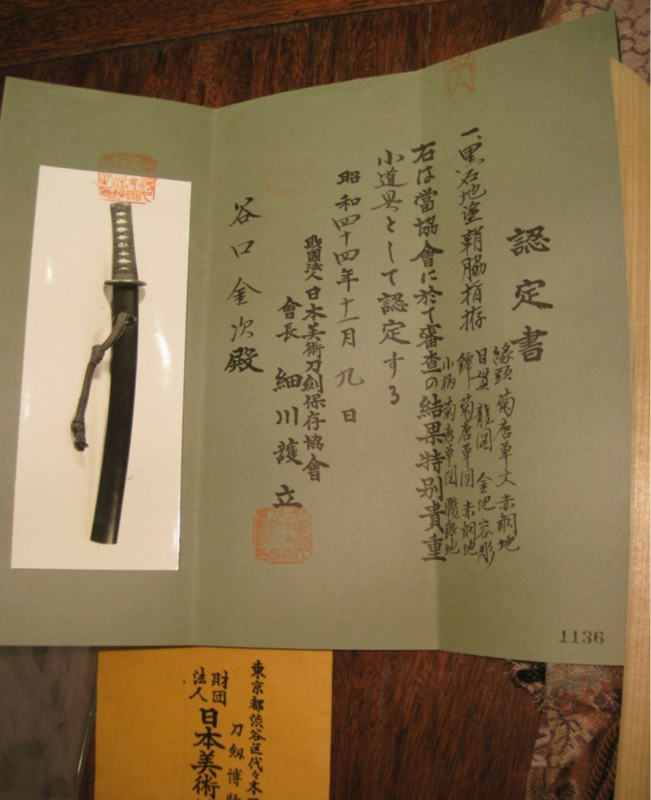 認定書
一、黒石地塗鞘脇指拵
縁頭 菊唐草文 赤銅地
目貫 龍図 金地容彫
鐔 菊唐草図 赤銅地
小柄 菊唐草図
右は當協會に於て審査の結果特別貴重
小道具として認定する
昭和四十四年十一月九日
財團法人日本美術刀劍保存協會
會長 細川護立
谷口金次殿
1136
東京都渋谷区代々木
刀剣博物
財団
法人
日本美術